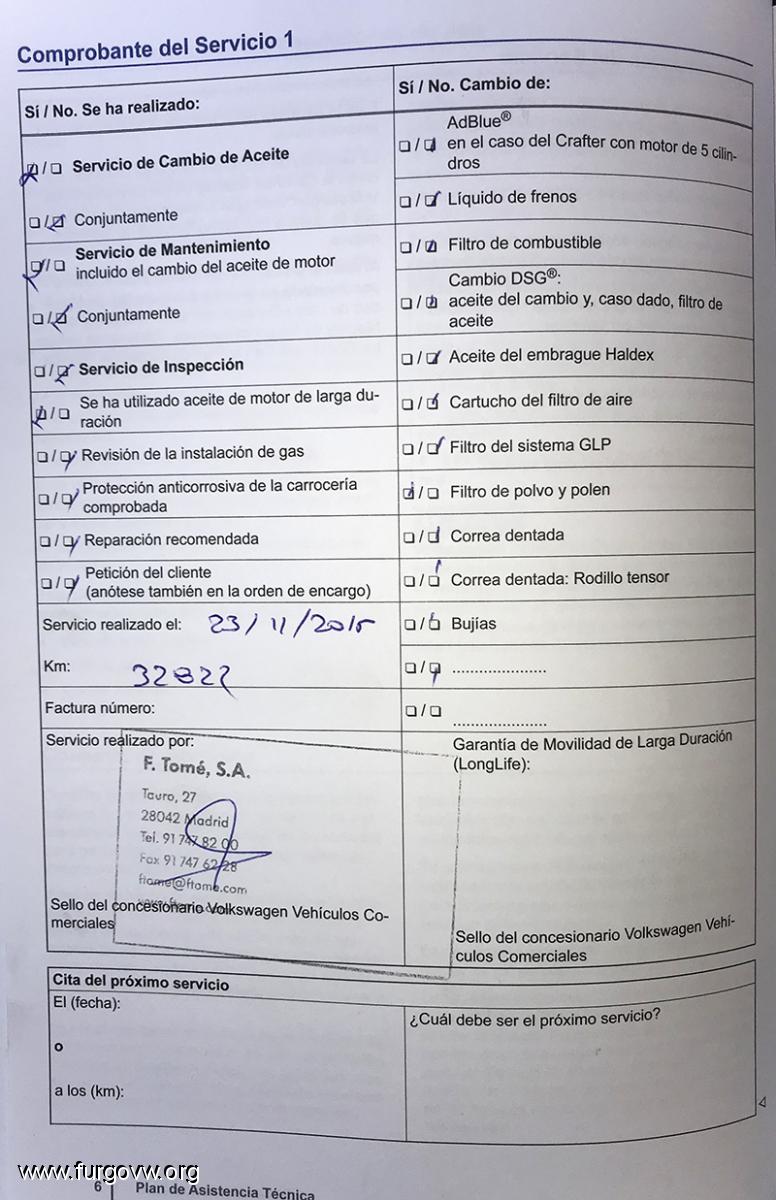 Comprobante del Servicio 1
Sí / No. Se ha realizado:
❏ / ❏ Servicio de Cambio de Aceite
❏ / ❏ Conjuntamente
❏ / ❏ Servicio de Mantenimiento
incluido el cambio del aceite de motor
❏ / ❏ Conjuntamente
❏ / ❏ Servicio de Inspección
❏ / ❏ Se ha utilizado aceite de motor de larga du-
ración
❏ / ❏ Revisión de la instalación de gas
❏ / ❏ Protección anticorrosiva de la carrocería
comprobada
❏ / ❏ Reparación recomendada
❏ / ❏ Petición del cliente
(anótese también en la orden de encargo)
Servicio realizado el: 23/11/2015
Km: 32822
Factura número:
Servicio realizado por:
F. Tomé, S.A.
Tauro, 27
28042 Madrid
Tel. 91 747 82 00
Fax 91 747 62 28
ftome@ftome.com
Sello del concesionario Volkswagen Vehículos Co-
merciales
Sí / No. Cambio de:
❏ / ❏ AdBlue®
en el caso del Crafter con motor de 5 cilin-
dros
❏ / ❏ Líquido de frenos
❏ / ❏ Filtro de combustible
❏ / ❏ Cambio DSG®:
aceite del cambio y, caso dado, filtro de
aceite
❏ / ❏ Aceite del embrague Haldex
❏ / ❏ Cartucho del filtro de aire
❏ / ❏ Filtro del sistema GLP
❏ / ❏ Filtro de polvo y polen
❏ / ❏ Correa dentada
❏ / ❏ Correa dentada: Rodillo tensor
❏ / ❏ Bujías
❏ / ❏ .....................
❏ / ❏ .....................
Garantía de Movilidad de Larga Duración
(LongLife):
Sello del concesionario Volkswagen Vehí-
culos Comerciales
Cita del próximo servicio
El (fecha):
o
a los (km):
¿Cuál debe ser el próximo servicio?
www.furgovw.org
6 Plan de Asistencia Técnica